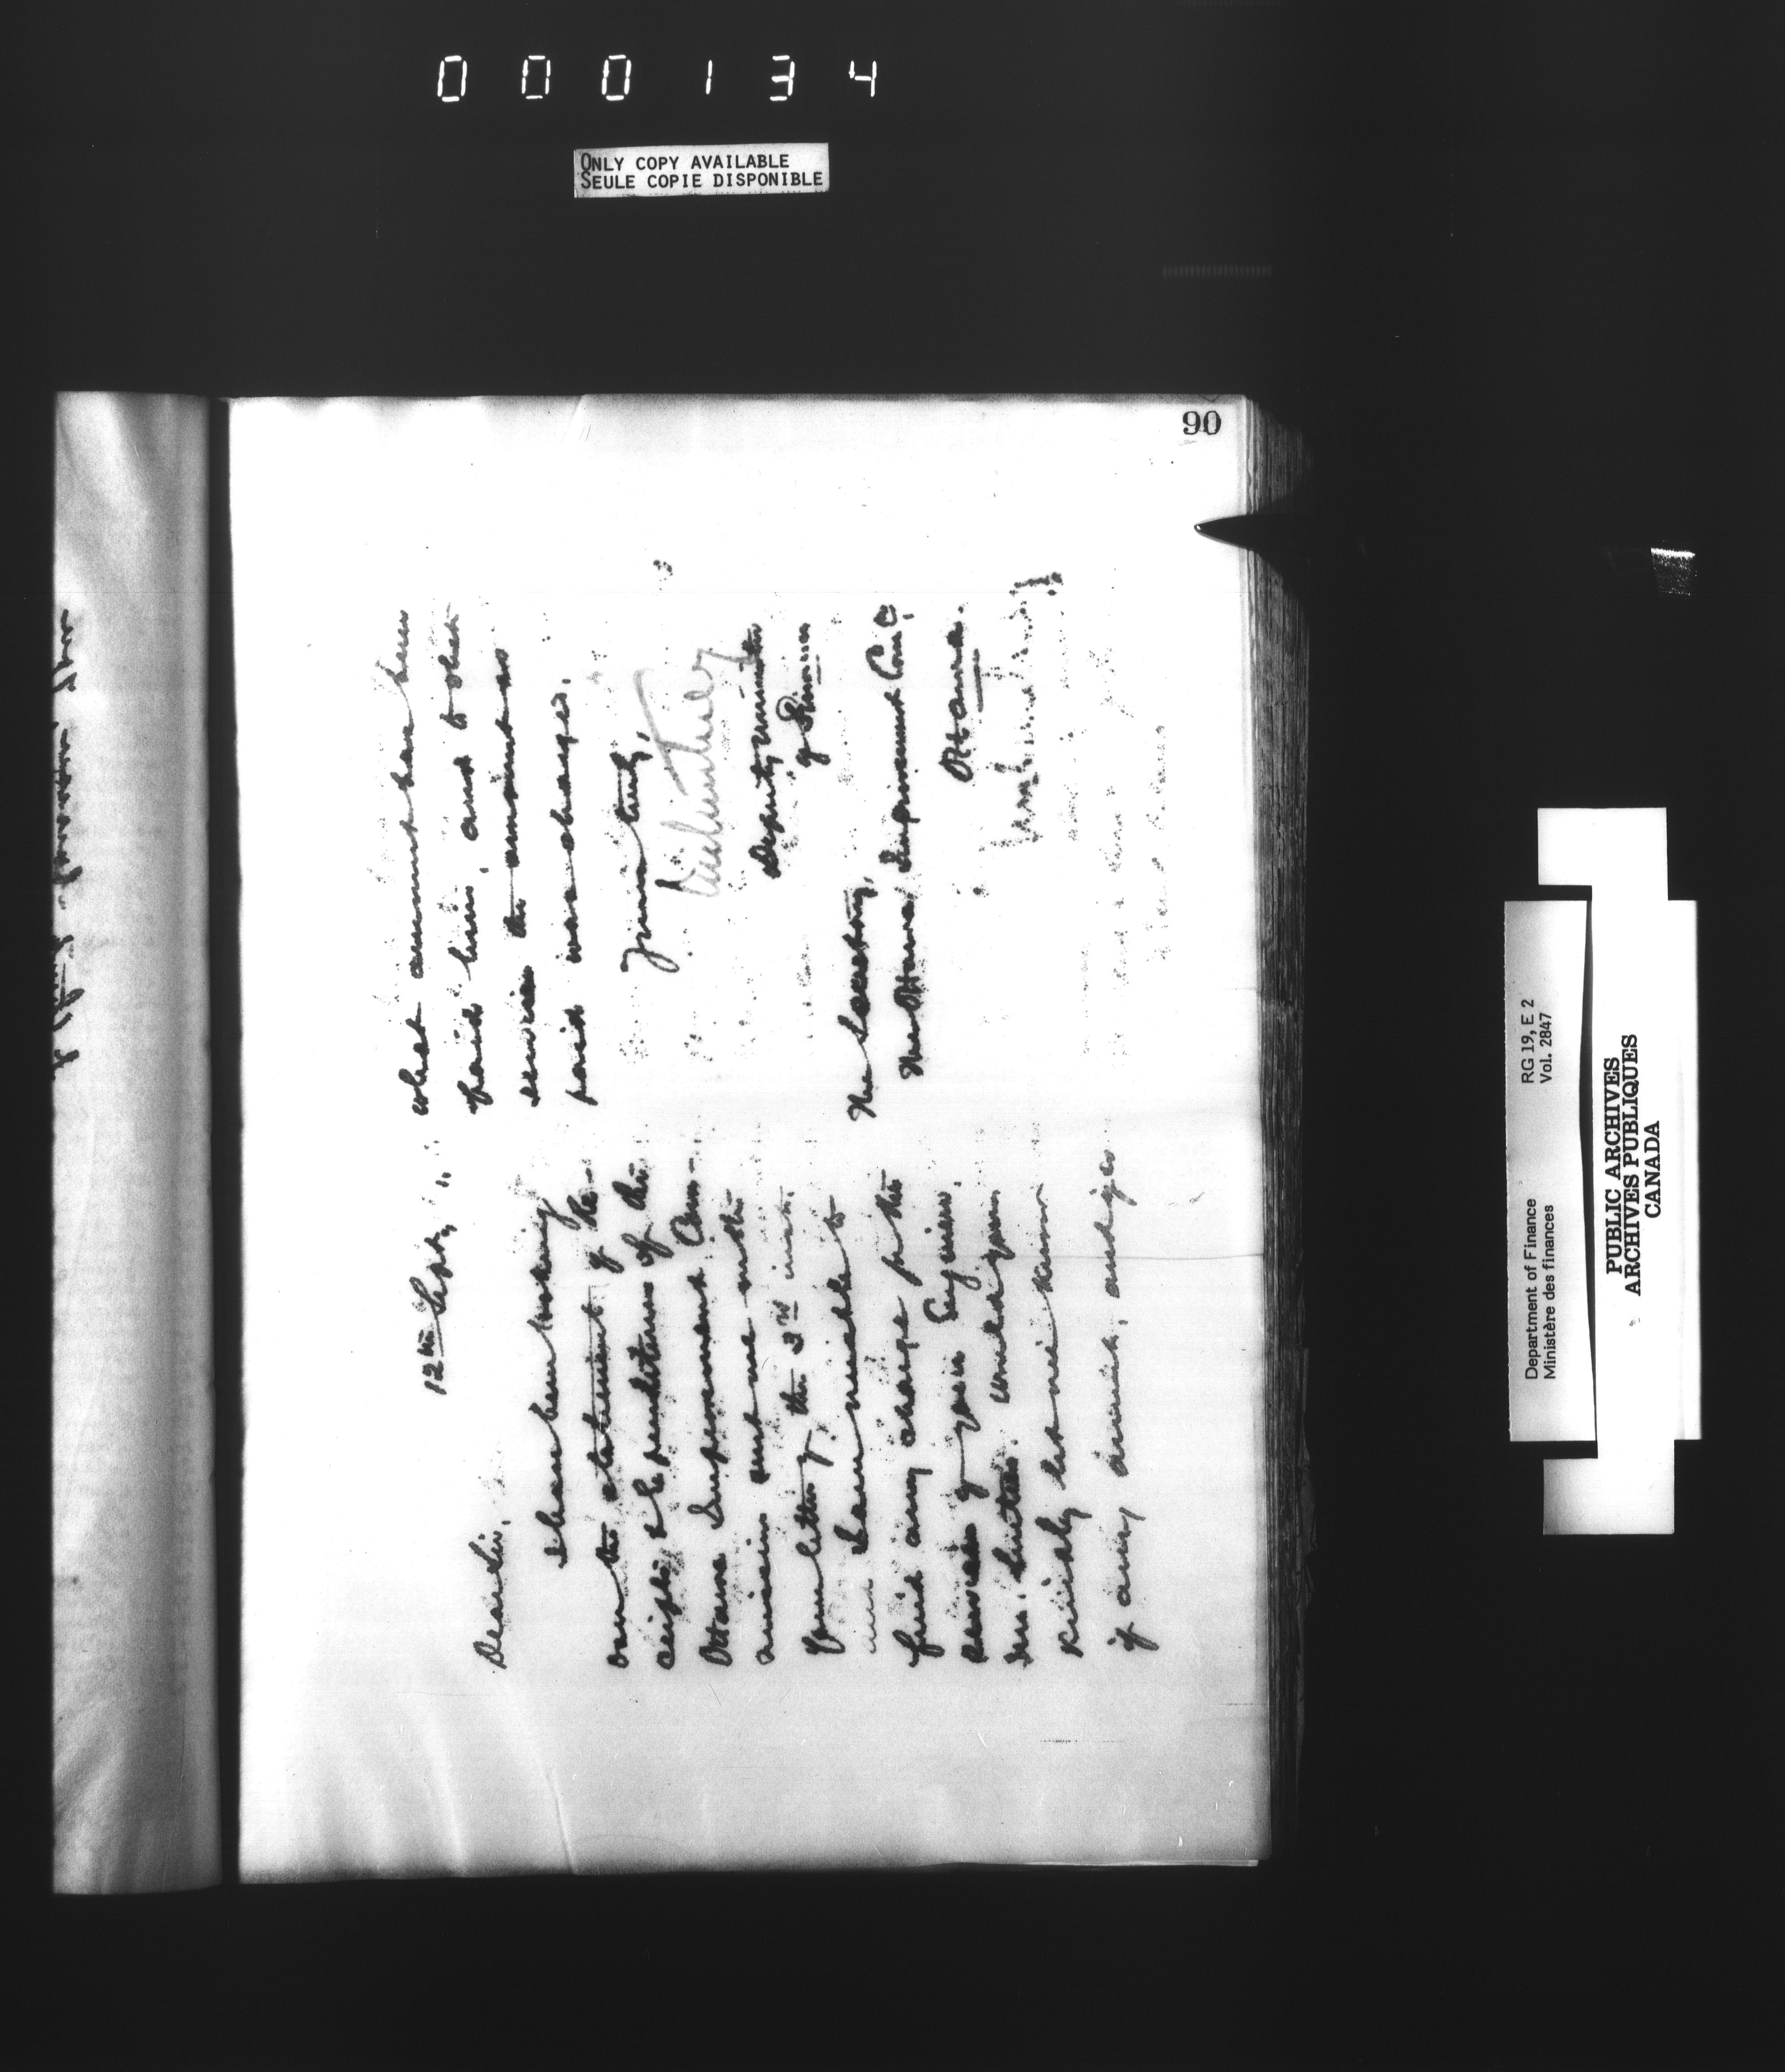 000134
ONLY COPY AVAILABLE
SEULE COPIE DISPONIBLE
90
12th Sept.
Dear Sir,
I have been looking
over the statement of the Re-
ceipts & Expenditures of the
Ottawa Improvement Com-
mission sent me with
your letter of the 3rd inst.
and I am unable to
find any charge for the
services of your Engineer,
Mr. Surtees. Would you
kindly let me know
if any service, and if so
what amount has been
paid him, and to what
service the amount so
paid was charged.
Yours truly,
Deputy Minister
of Finance
The Secretary,
The Ottawa Improvement Com'n
Ottawa.
Department of Finance
Ministère des finances
RG 19, E 2
Vol. 2847
PUBLIC ARCHIVES
ARCHIVES PUBLIQUES
CANADA